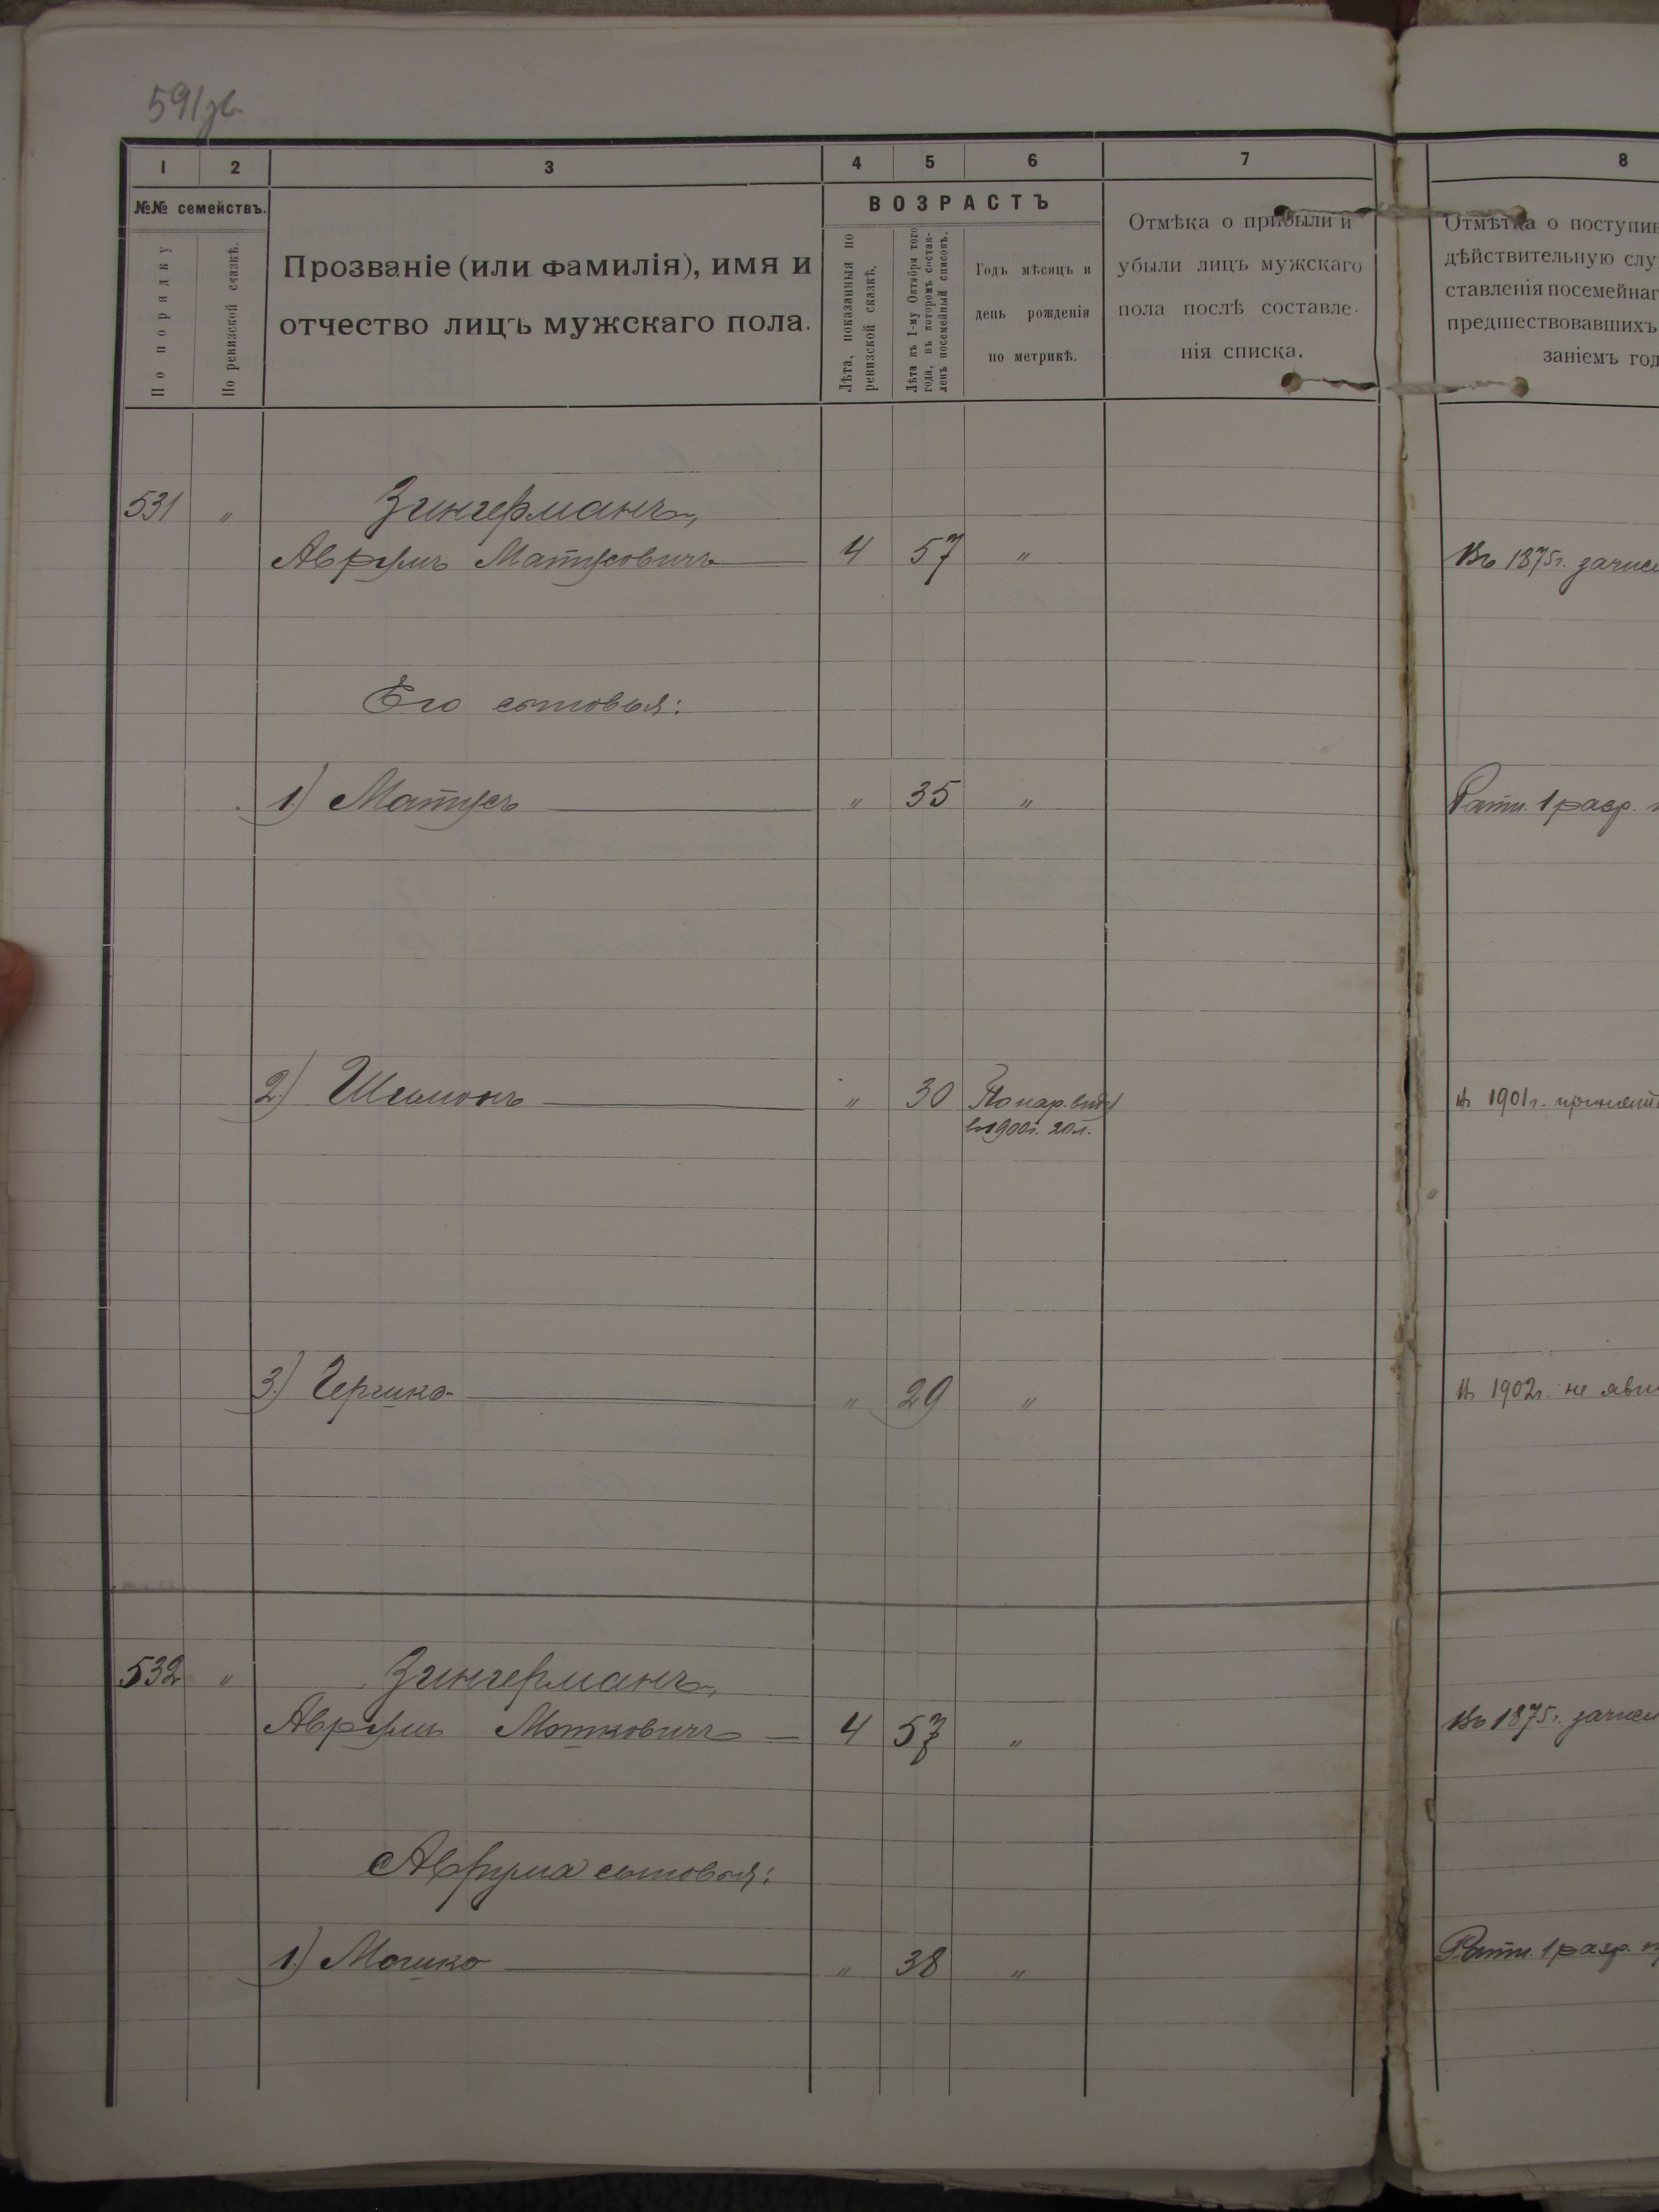 591об.
1 2 3 4 5 6 7 8
№№ семействъ.
По порядку
По ревизской сказкѣ.
Прозваніе (или фамилія), имя и
отчество лицъ мужскаго пола.
ВОЗРАСТЪ
Лѣта, показанныя по
ревизской сказкѣ.
Лѣта къ 1-му Октября того
года, въ которомъ состав-
ленъ посемейный списокъ.
Годъ мѣсяцъ и
день рожденія
по метрикѣ.
Отмѣка о прибыли и
убыли лицъ мужскаго
пола послѣ составле-
нія списка.
Отмѣтка о поступив
дѣйствительную слу
ставленія посемейнаг
предшествовавшихъ
заніемъ год
531 " Зингерманъ,
Аврумъ Матусовичъ 4 57 " Въ 1875г. зачис
Его сыновья:
1) Матусъ " 35 " Ратн. 1 разр.
2) Шимонъ " 30 По нар. виду
въ 1900г. 20 л.
Въ 1901г. принятъ
3) Гершко " 29 " Въ 1902г. не яви
532 " Зингерманъ,
Аврумъ Мошковичъ 4 57 " Въ 1875г. зачис
Аврума сыновья:
1) Мошко " 38 " Ратн. 1 разр.